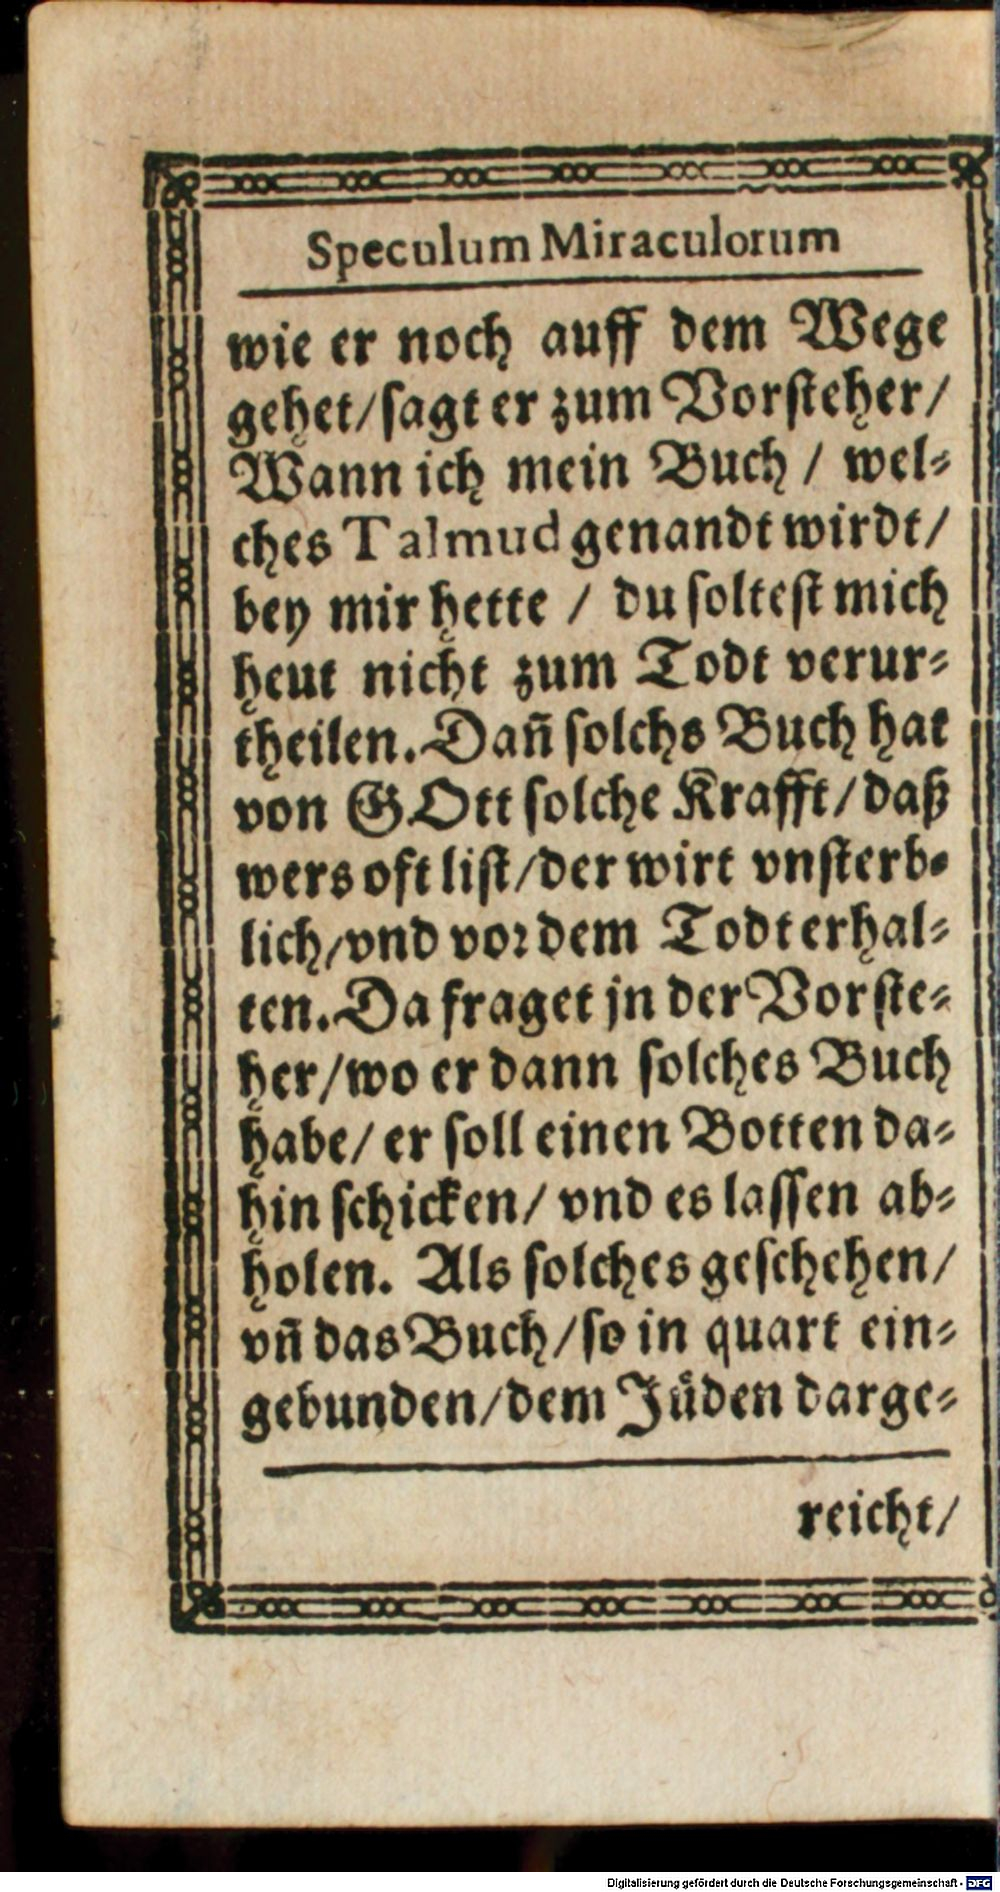 Speculum Miraculorum
wie er noch auff dem Wege
gehet/ſagt er zum Vorſteher/
Wann ich mein Buch / wel⸗
ches Talmud genandt wirdt/
bey mir hette / du ſolteſt mich
heut nicht zum Todt verur⸗
theilen. Dañ ſolchs Buch hat
von GOtt ſolche Krafft/daß
wers oft liſt/der wirt vnſterb⸗
lich/vnd voꝛ dem Todt erhal⸗
ten. Da fraget jn der Vorſte⸗
her/wo er dann ſolches Buch
habe/ er ſoll einen Botten da⸗
hin ſchicken/ vnd es laſſen ab⸗
holen. Als ſolches geſchehen/
vñ das Buch/ſo in quart ein⸗
gebunden/dem Jüden darge⸗
reicht/
Digitalisierung gefördert durch die Deutsche Forschungsgemeinschaft - DFG